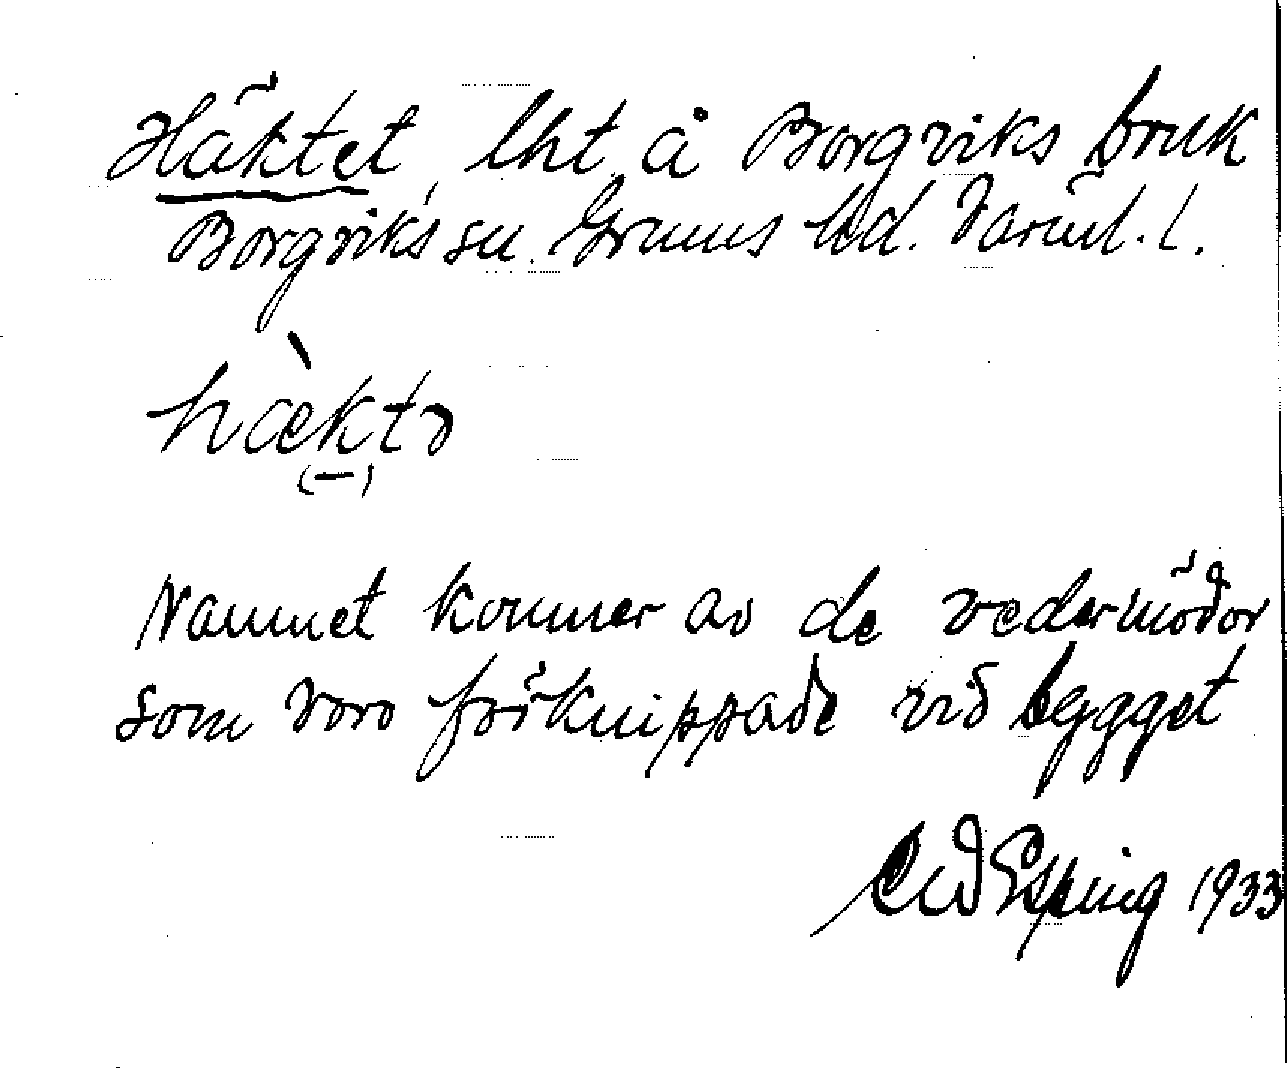 Häktet, lht å Borgviks bruk
Borgviks sn. Grums hd. Värml. l.
hæ̀ktə
(–)
Namnet kommer av de vedermödor
som voro förknippade vid bygget
Esping 1933